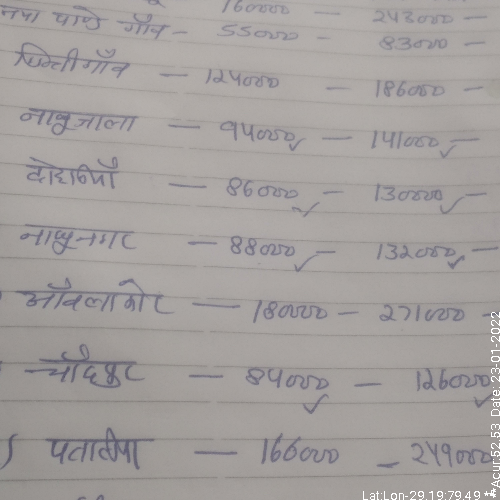 160000 - 243000 -
नया पाण्डे गाँव - 55000 - 83000 -
गाँव - 124000 - 186000 -
नाथुजाला - 94000✓ - 141000✓ -
- 86000✓ - 130000✓ -
नाथुनगर - 88000✓ - 132000✓ -
आँवलाकोट - 180000 - 271000 -
चाँदपुर - 84000✓ - 126000✓
) - 166000 - 249000 -
Lat:Lon-29.19:79.49 **Acur:52.53 Date: 23-01-2022